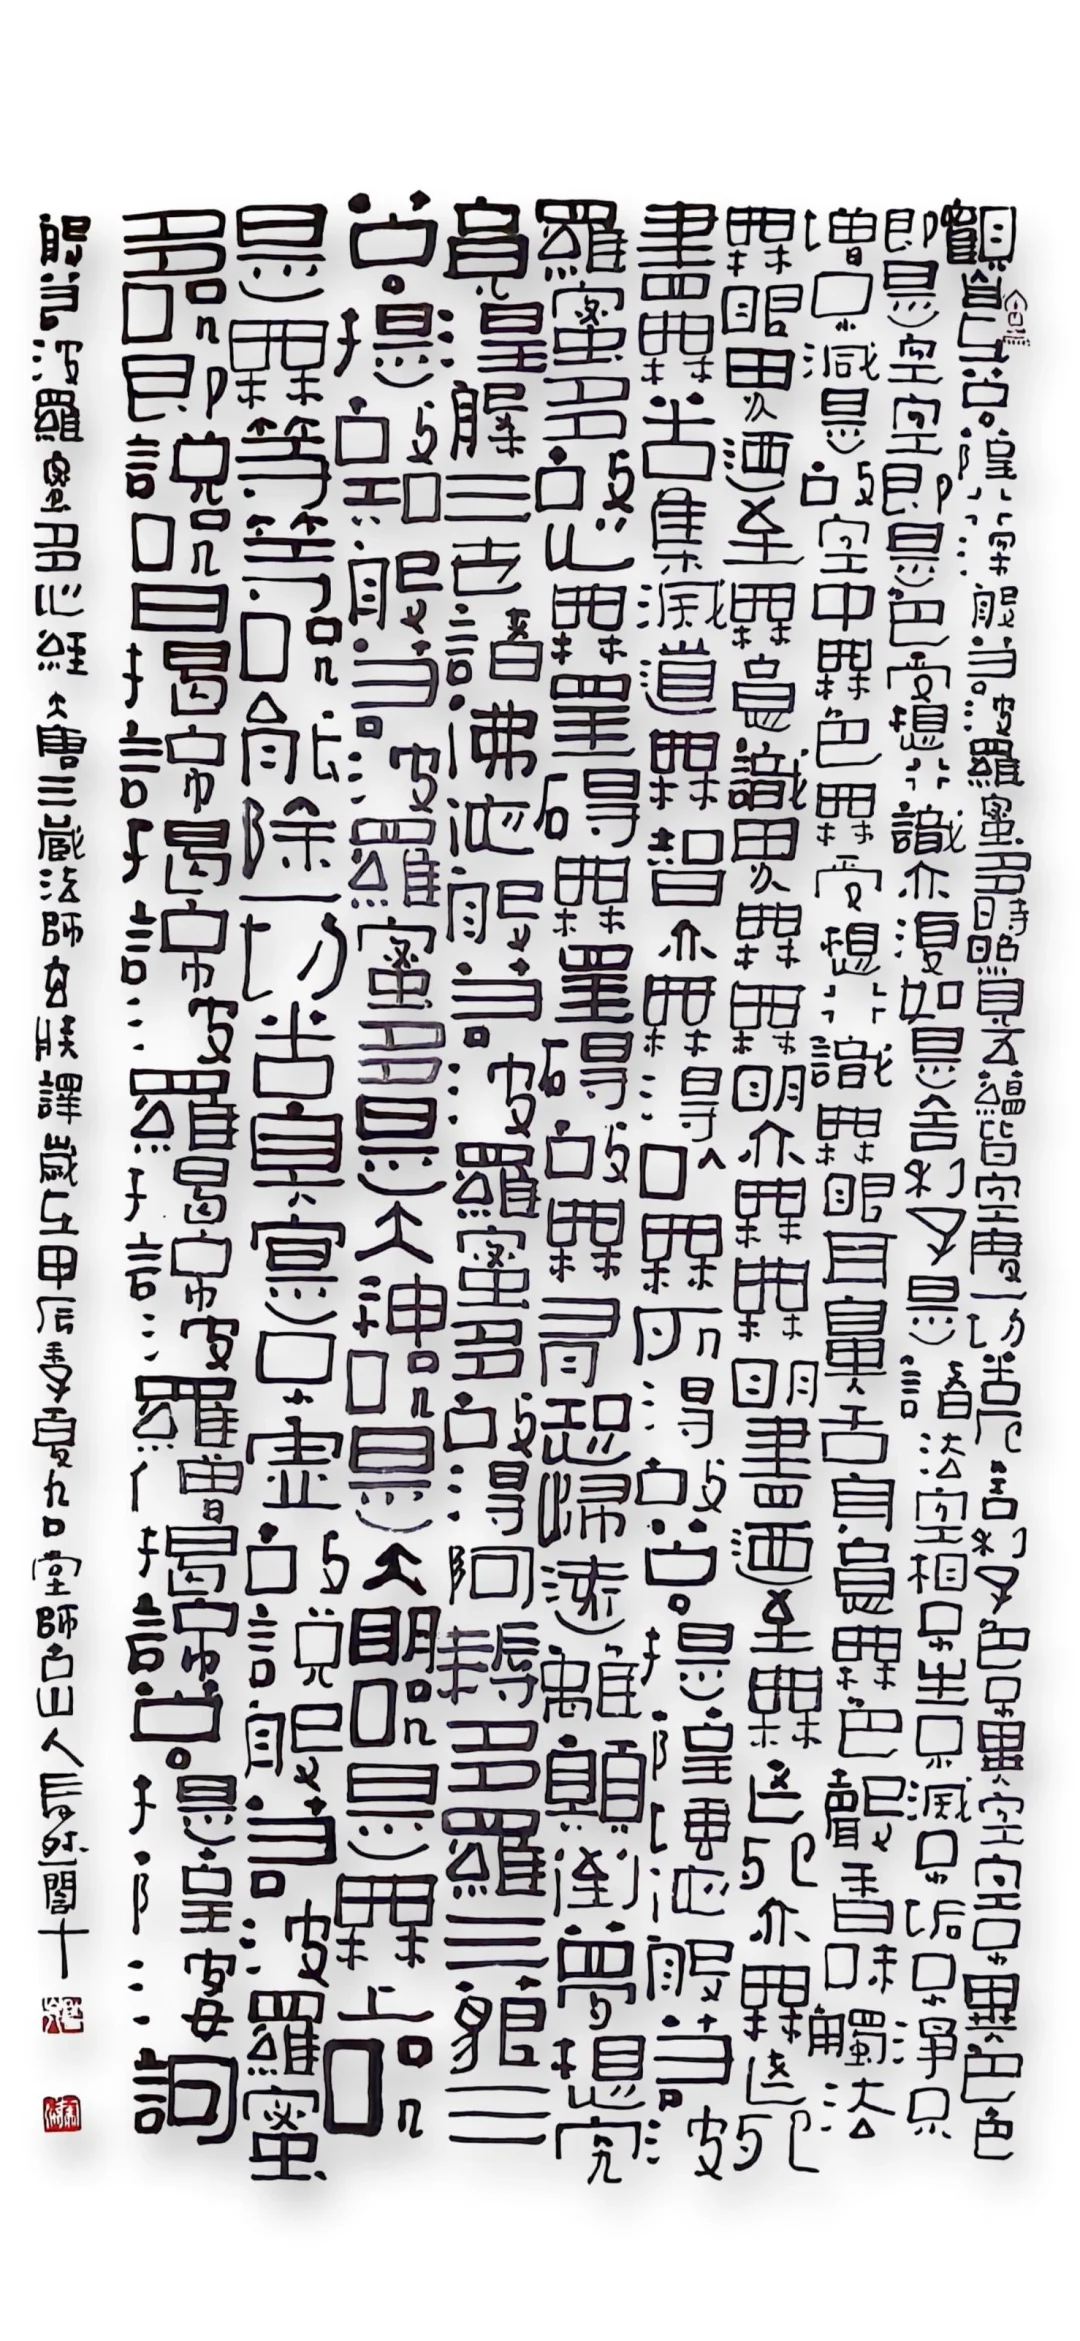 觀自在菩薩行深般若波羅蜜多時照見五蘊皆空度一切苦厄舍利子色不異空空不異色色
即是空空即是色受想行識亦復如是舍利子是諸法空相不生不滅不垢不淨不
增不減是故空中無色無受想行識無眼耳鼻舌身意無色聲香味觸法
無眼界迺至無意識界無無明亦無無明盡迺至無老死亦無老死
盡無苦集滅道無智亦無得以無所得故菩提薩埵依般若波
羅蜜多故心無罣礙無罣礙故無有恐怖遠離顛倒夢想究
竟涅槃三世諸佛依般若波羅蜜多故得阿耨多羅三藐三
菩提故知般若波羅蜜多是大神咒是大明咒是無上咒
是無等等咒能除一切苦真實不虛故說般若波羅蜜
多咒即說咒曰揭諦揭諦波羅揭諦波羅僧揭諦菩提薩婆訶
般若波羅蜜多心經大唐三藏法師玄奘譯歲在甲辰季夏九口堂師古山人